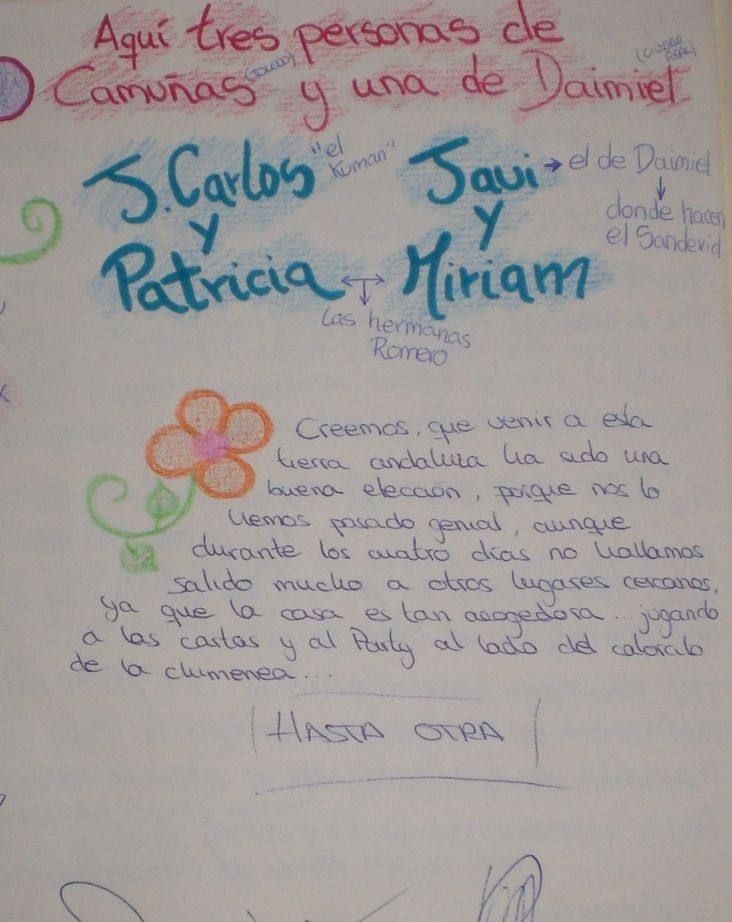 Aquí tres personas de
(TOLEDO) (CIUDAD REAL)
Camuñas y una de Daimiel
J. Carlos "el Kuman" Javi → el de Daimiel
↓
y y donde hacen
el Sandevid
Patricia ↔ Miriam
↓
las hermanas
Romero
Creemos, que venir a esta
tierra andaluza ha sido una
buena elección, porque nos lo
hemos pasado genial, aunque
durante los cuatro días no hallamos
salido mucho a otros lugares cercanos,
ya que la casa es tan acogedora... jugando
a las cartas y al Party al lado del calorcito
de la chimenea...
HASTA OTRA